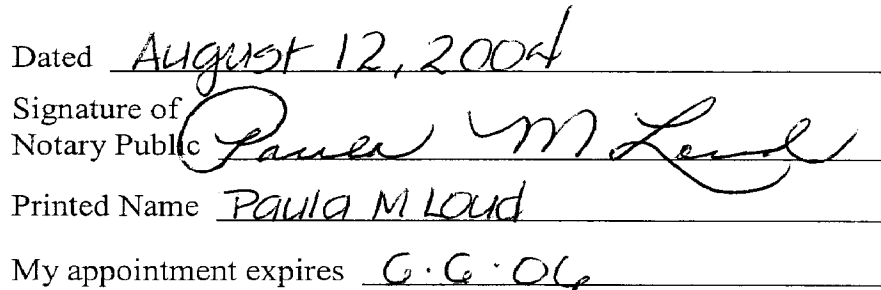 Dated August 12, 2004
Signature of
Notary Public Paula M Loud
Printed Name Paula M Loud
My appointment expires 6·6·06